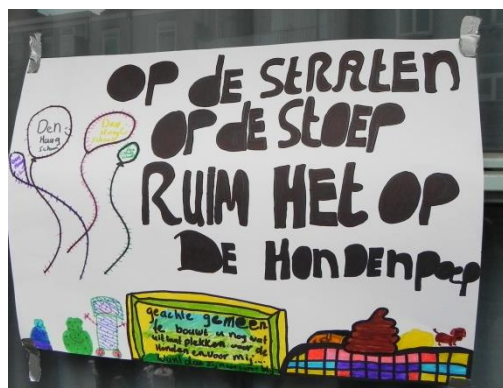 OP de STRATEN
OP de STOEP
RUIM HET OP
DE HONDENPOEP
Den
Haag
schoon
Den
Haag
geachte gemeen
te bouwt u nog wat
uitlaat plekken voor de
Honden en voor mij...